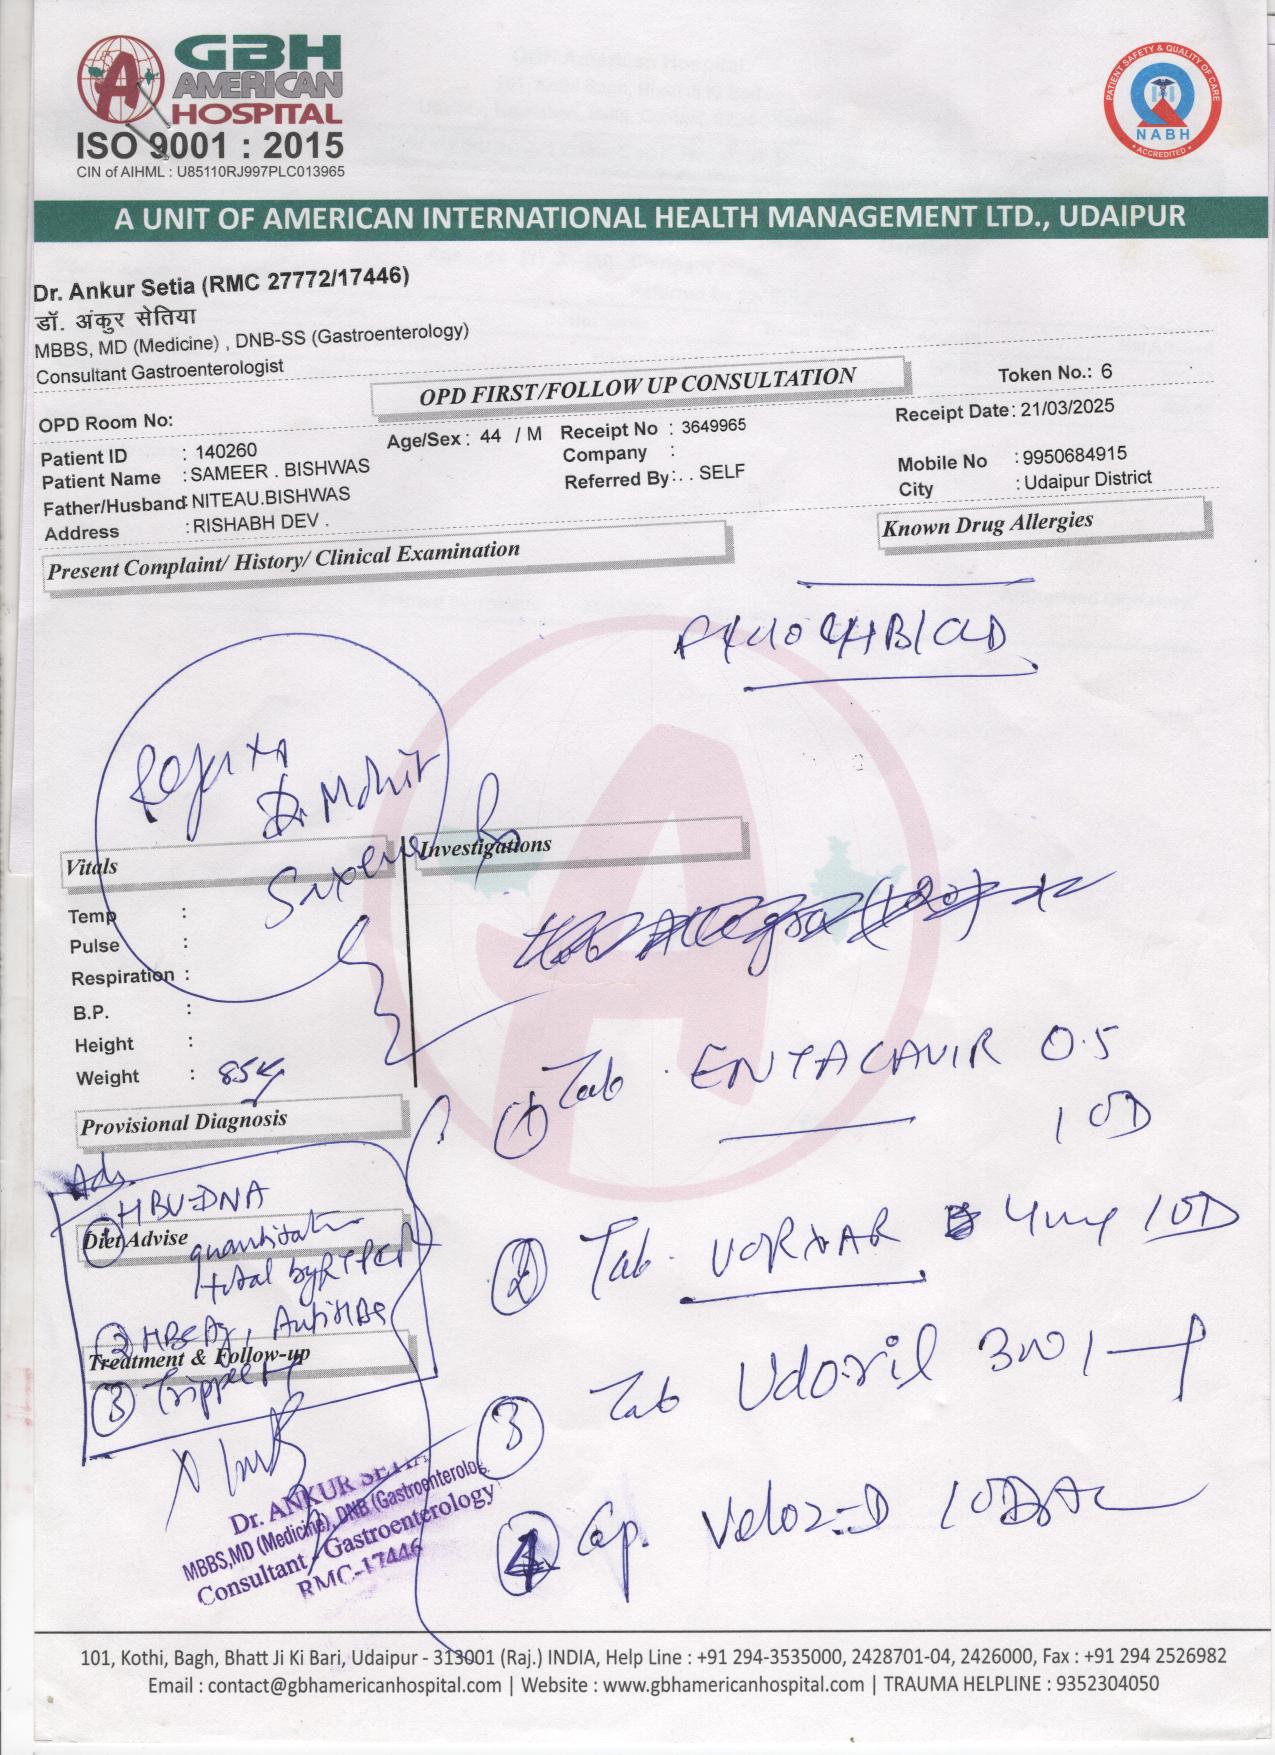 GBH
AMERICAN
HOSPITAL
ISO 9001 : 2015
CIN of AIHML : U85110RJ997PLC013965
PATIENT SAFETY & QUALITY OF CARE
NABH
• ACCREDITED •
A UNIT OF AMERICAN INTERNATIONAL HEALTH MANAGEMENT LTD., UDAIPUR
Dr. Ankur Setia (RMC 27772/17446)
डॉ. अंकुर सेतिया
MBBS, MD (Medicine) , DNB-SS (Gastroenterology)
Consultant Gastroenterologist
OPD FIRST/FOLLOW UP CONSULTATION
Token No.: 6
OPD Room No:
Receipt Date: 21/03/2025
Patient ID : 140260
Age/Sex : 44 / M
Receipt No : 3649965
Patient Name : SAMEER . BISHWAS
Company :
Mobile No : 9950684915
Father/Husband: NITEAU.BISHWAS
Referred By:. . SELF
City : Udaipur District
Address : RISHABH DEV .
Known Drug Allergies
Present Complaint/ History/ Clinical Examination
Dr Mohit
Vitals
Investigations
Temp :
Pulse :
Respiration :
B.P. :
Height :
Weight : 85kg
① Tab. ENTACAVIR 0.5
1 OD
Provisional Diagnosis
Adv.
① HBV-DNA
Diet Advise
quantitative
total by RTPCR
② Tab. VORXAR 4mg 1OD
② HBeAg, AntiHBe
Treatment & Follow-up
③ Tripple
③ Tab Udoxil 300 1
4 Cap. Veloz-D 1OD
Dr. ANKUR SETIA
MBBS,MD (Medicine), DNB (Gastroenterolog
Consultant - Gastroenterology
RMC-17446
101, Kothi, Bagh, Bhatt Ji Ki Bari, Udaipur - 313001 (Raj.) INDIA, Help Line : +91 294-3535000, 2428701-04, 2426000, Fax : +91 294 2526982
Email : contact@gbhamericanhospital.com | Website : www.gbhamericanhospital.com | TRAUMA HELPLINE : 9352304050